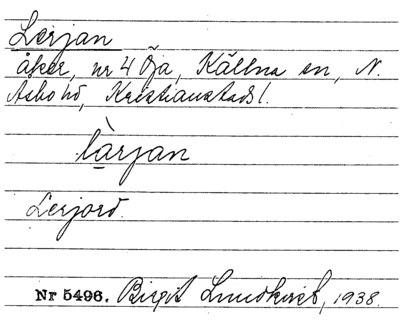 Lerjan
åker, nr 4 Öja, Källna sn, N.
Asbo hd, Kristianstads l.
làrjan
Lerjord.
Nr 5496. Birgit Lundkvist, 1938.